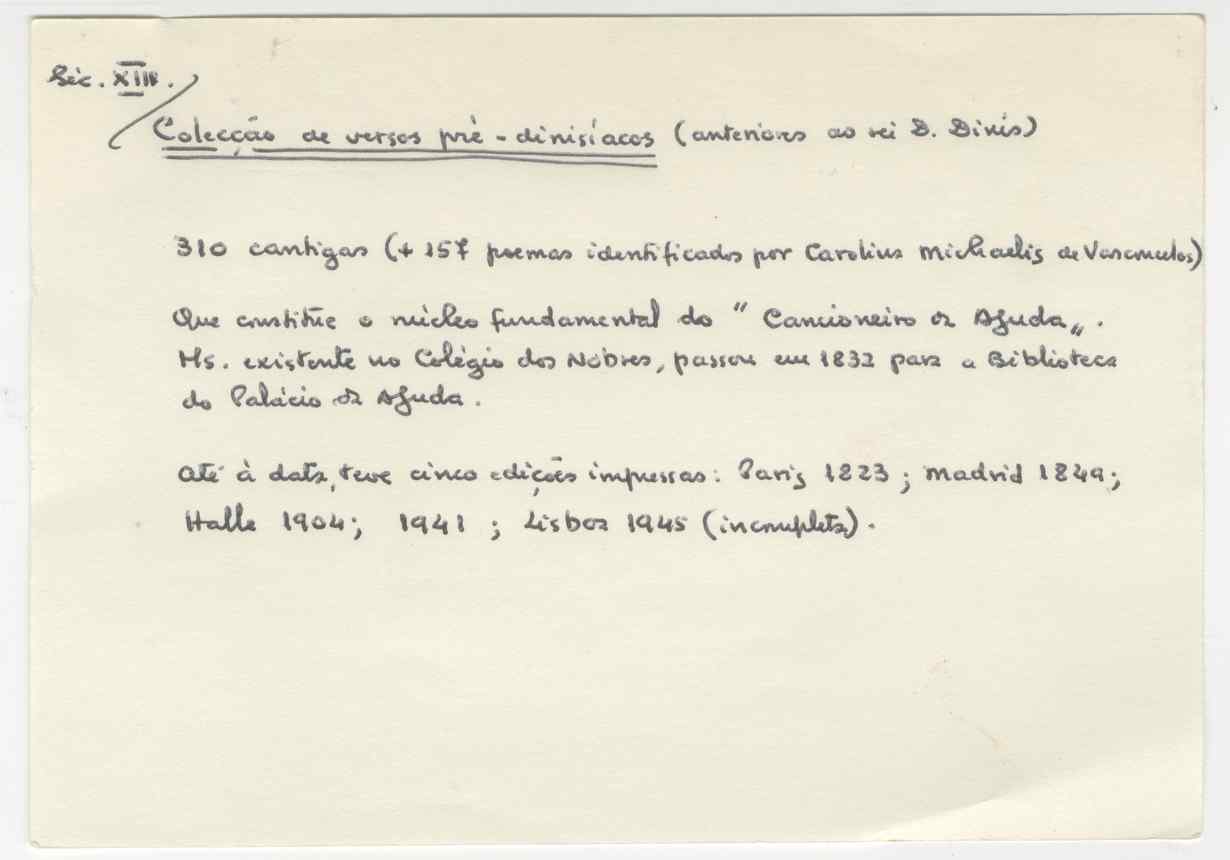 Séc. XIII.
Colecção de versos pré-dinisíacos (anteriores ao rei D. Dinis)
310 cantigas (+ 157 poemas identificados por Carolina Michaelis de Vasconcelos)
Que constitue o núcleo fundamental do "Cancioneiro da Ajuda„.
Ms. existente no Colégio dos Nobres, passou em 1832 para a Biblioteca
do Palácio da Ajuda.
Até à data, teve cinco edições impressas: Paris 1823; Madrid 1849;
Halle 1904; 1941; Lisboa 1945 (incompleta).